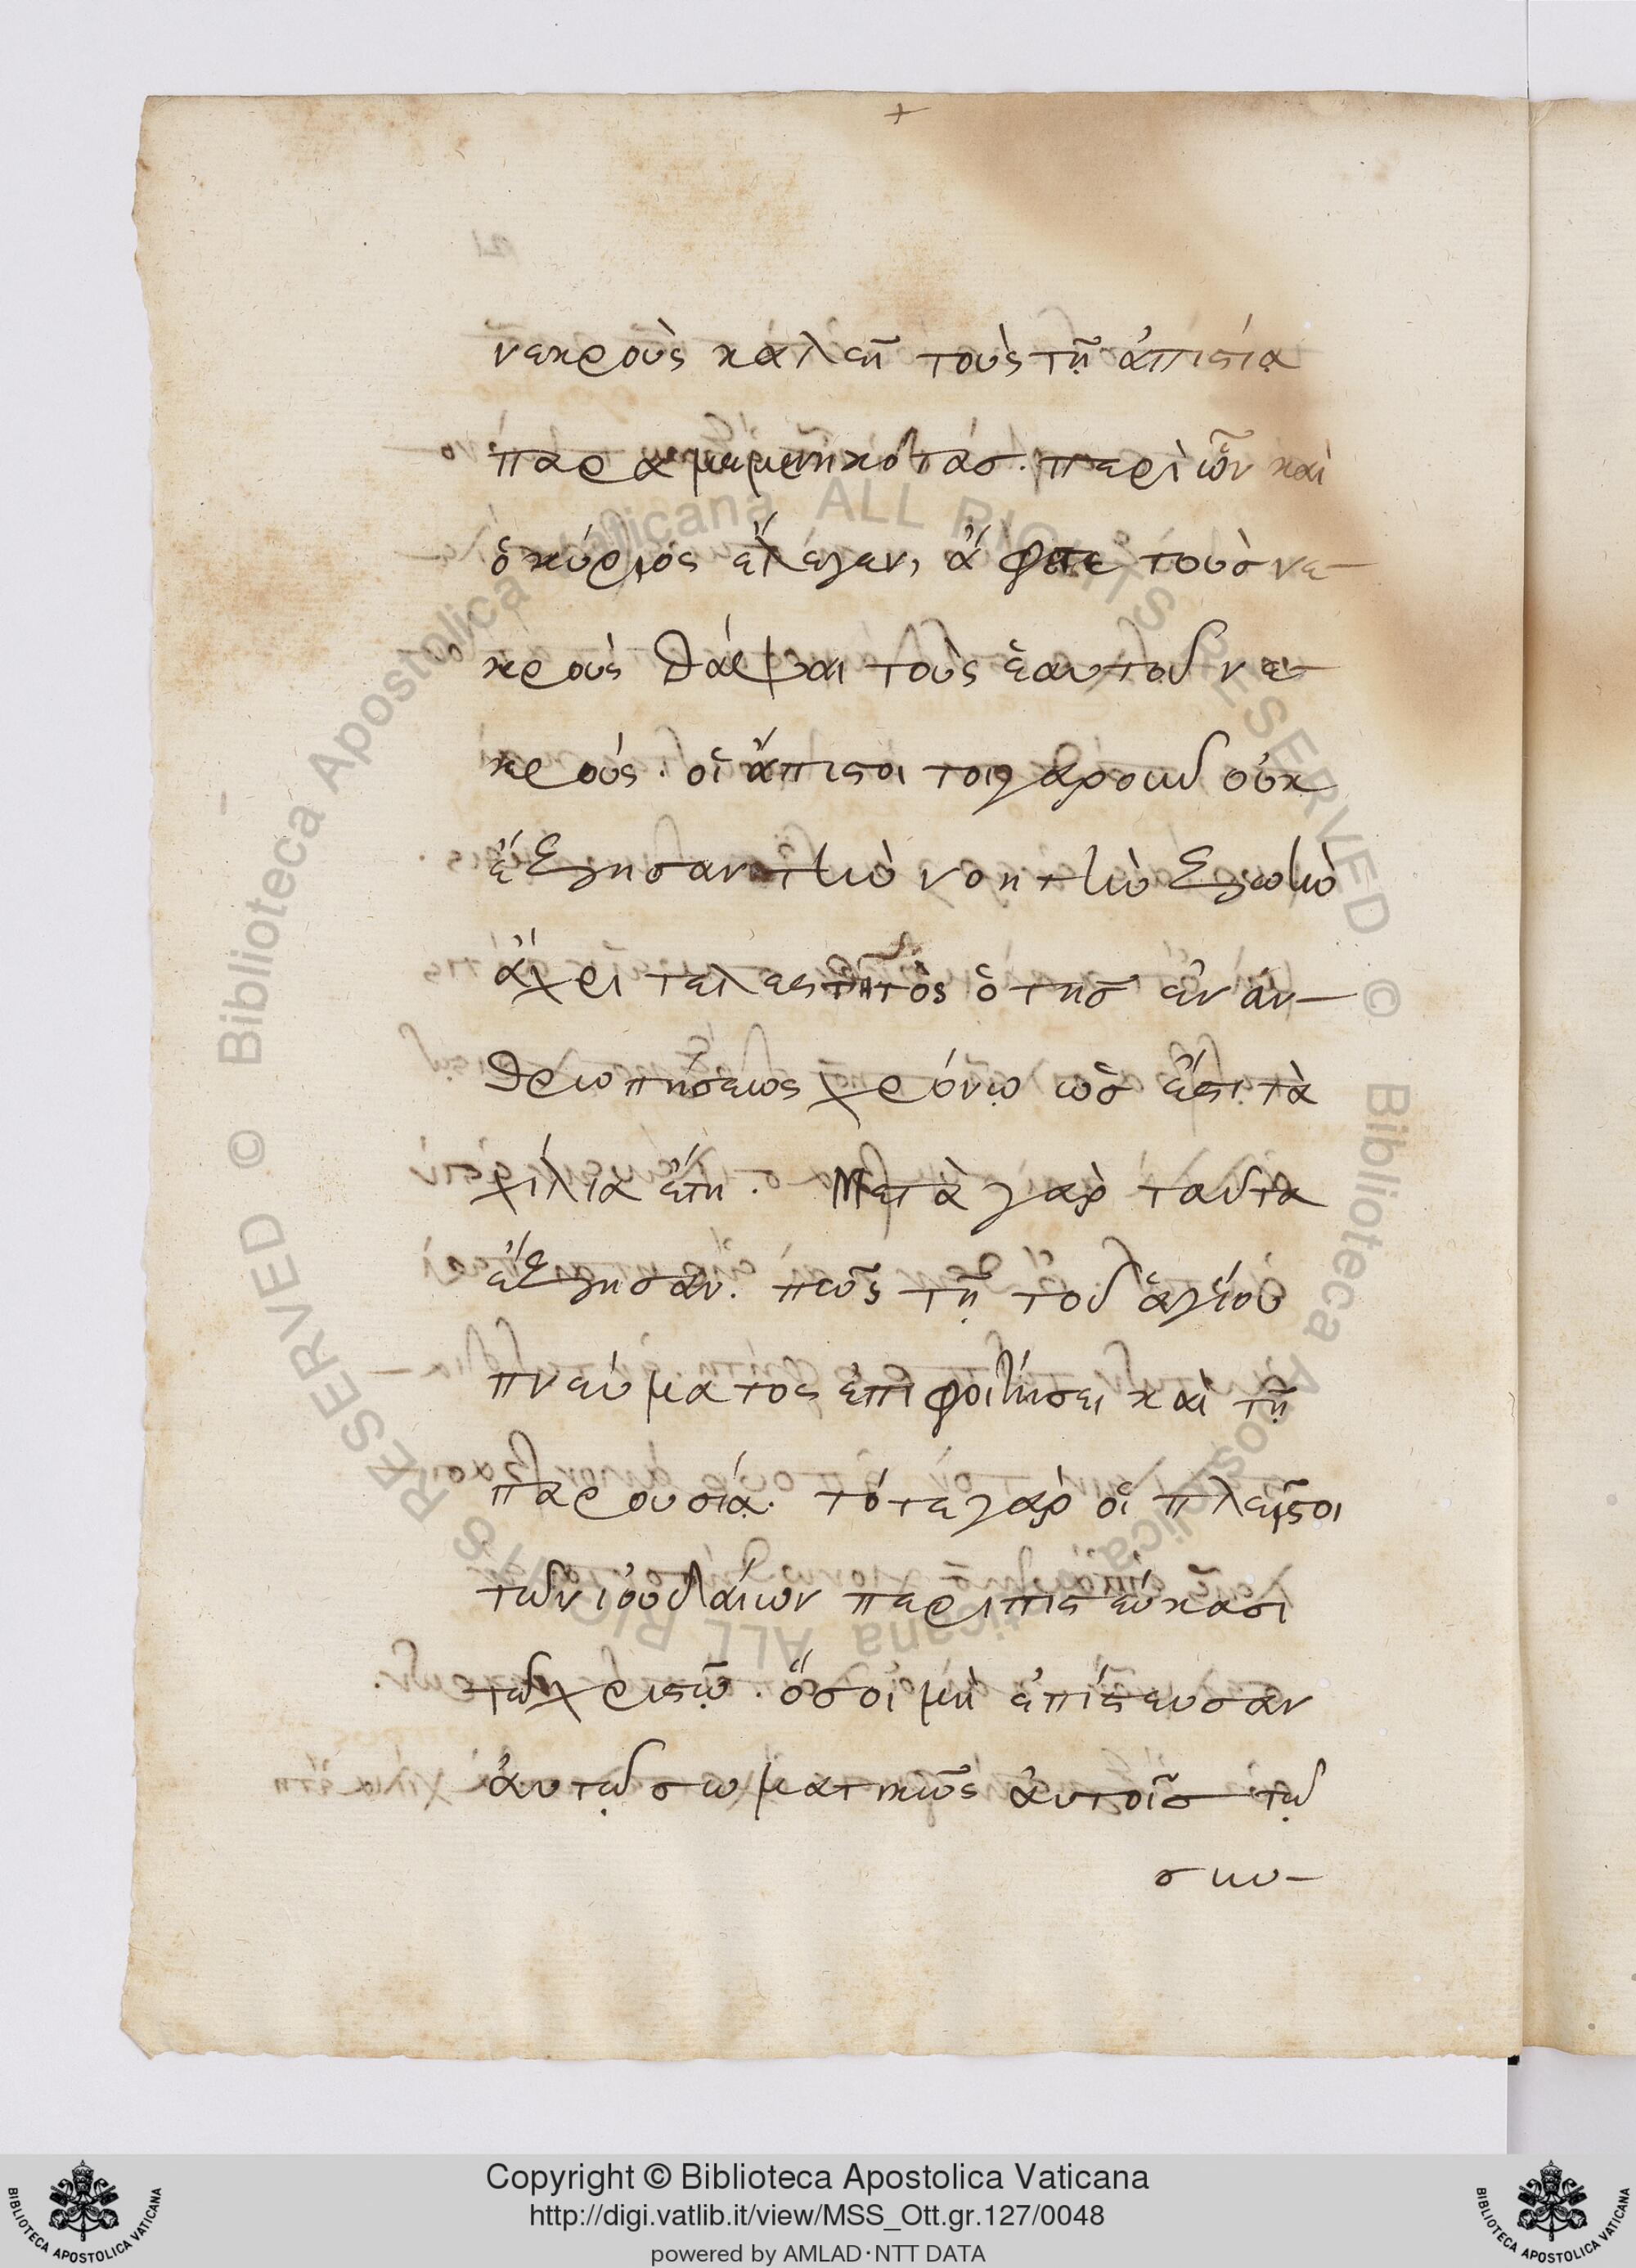 νεκροὺς καλεῖ τοὺς τῇ ἀπιστίᾳ
παραμεμενηκότας. περὶ ὧν καὶ
ὁ κύριος ἔλεγεν, ἄφετε τοὺσ νε-
κροὺς θάψαι τοὺς ἑαυτοῦ νε-
κρούς. οἱ ἄπιστοι τοιγαροῦν οὐκ
ἔζησαν τὴν νοητὴν ζωὴν
ἄχρι τελεσθῇ ὁ τῆσ ἐναν-
θρωπήσεως χρόνῳ ὡσ ἔστι τὰ
χίλια ἔτη. Μετὰ γὰρ ταῦτα
ἔζησαν. πῶς τῇ τοῦ ἁγίου
πνεύματος ἐπιφοιτήσει καὶ τῇ
παρουσίᾳ. τότε γὰρ οἱ πλεῖστοι
τῶν ἰουδαίων περιπιστεύκασι
τῷ χριστῷ. ὅσοι μὴ ἐπίστευσαν
ἀυτῷ σωματικῶς ἀυτοῖσ τῷ
συν-
Copyright © Biblioteca Apostolica Vaticana
http://digi.vatlib.it/view/MSS_Ott.gr.127/0048
powered by AMLAD·NTT DATA
BIBLIOTECA APOSTOLICA VATICANA
BIBLIOTECA APOSTOLICA VATICANA
© Biblioteca Apostolica Vaticana ALL RIGHTS RESERVED © Biblioteca Apostolica Vaticana ALL RIGHTS RESERVED